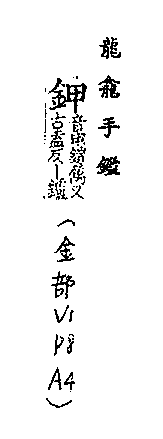 龍龕手鑑
鉀 音甲鎧屬又
古盍反丨鑪
(金部V1
P8
A4)